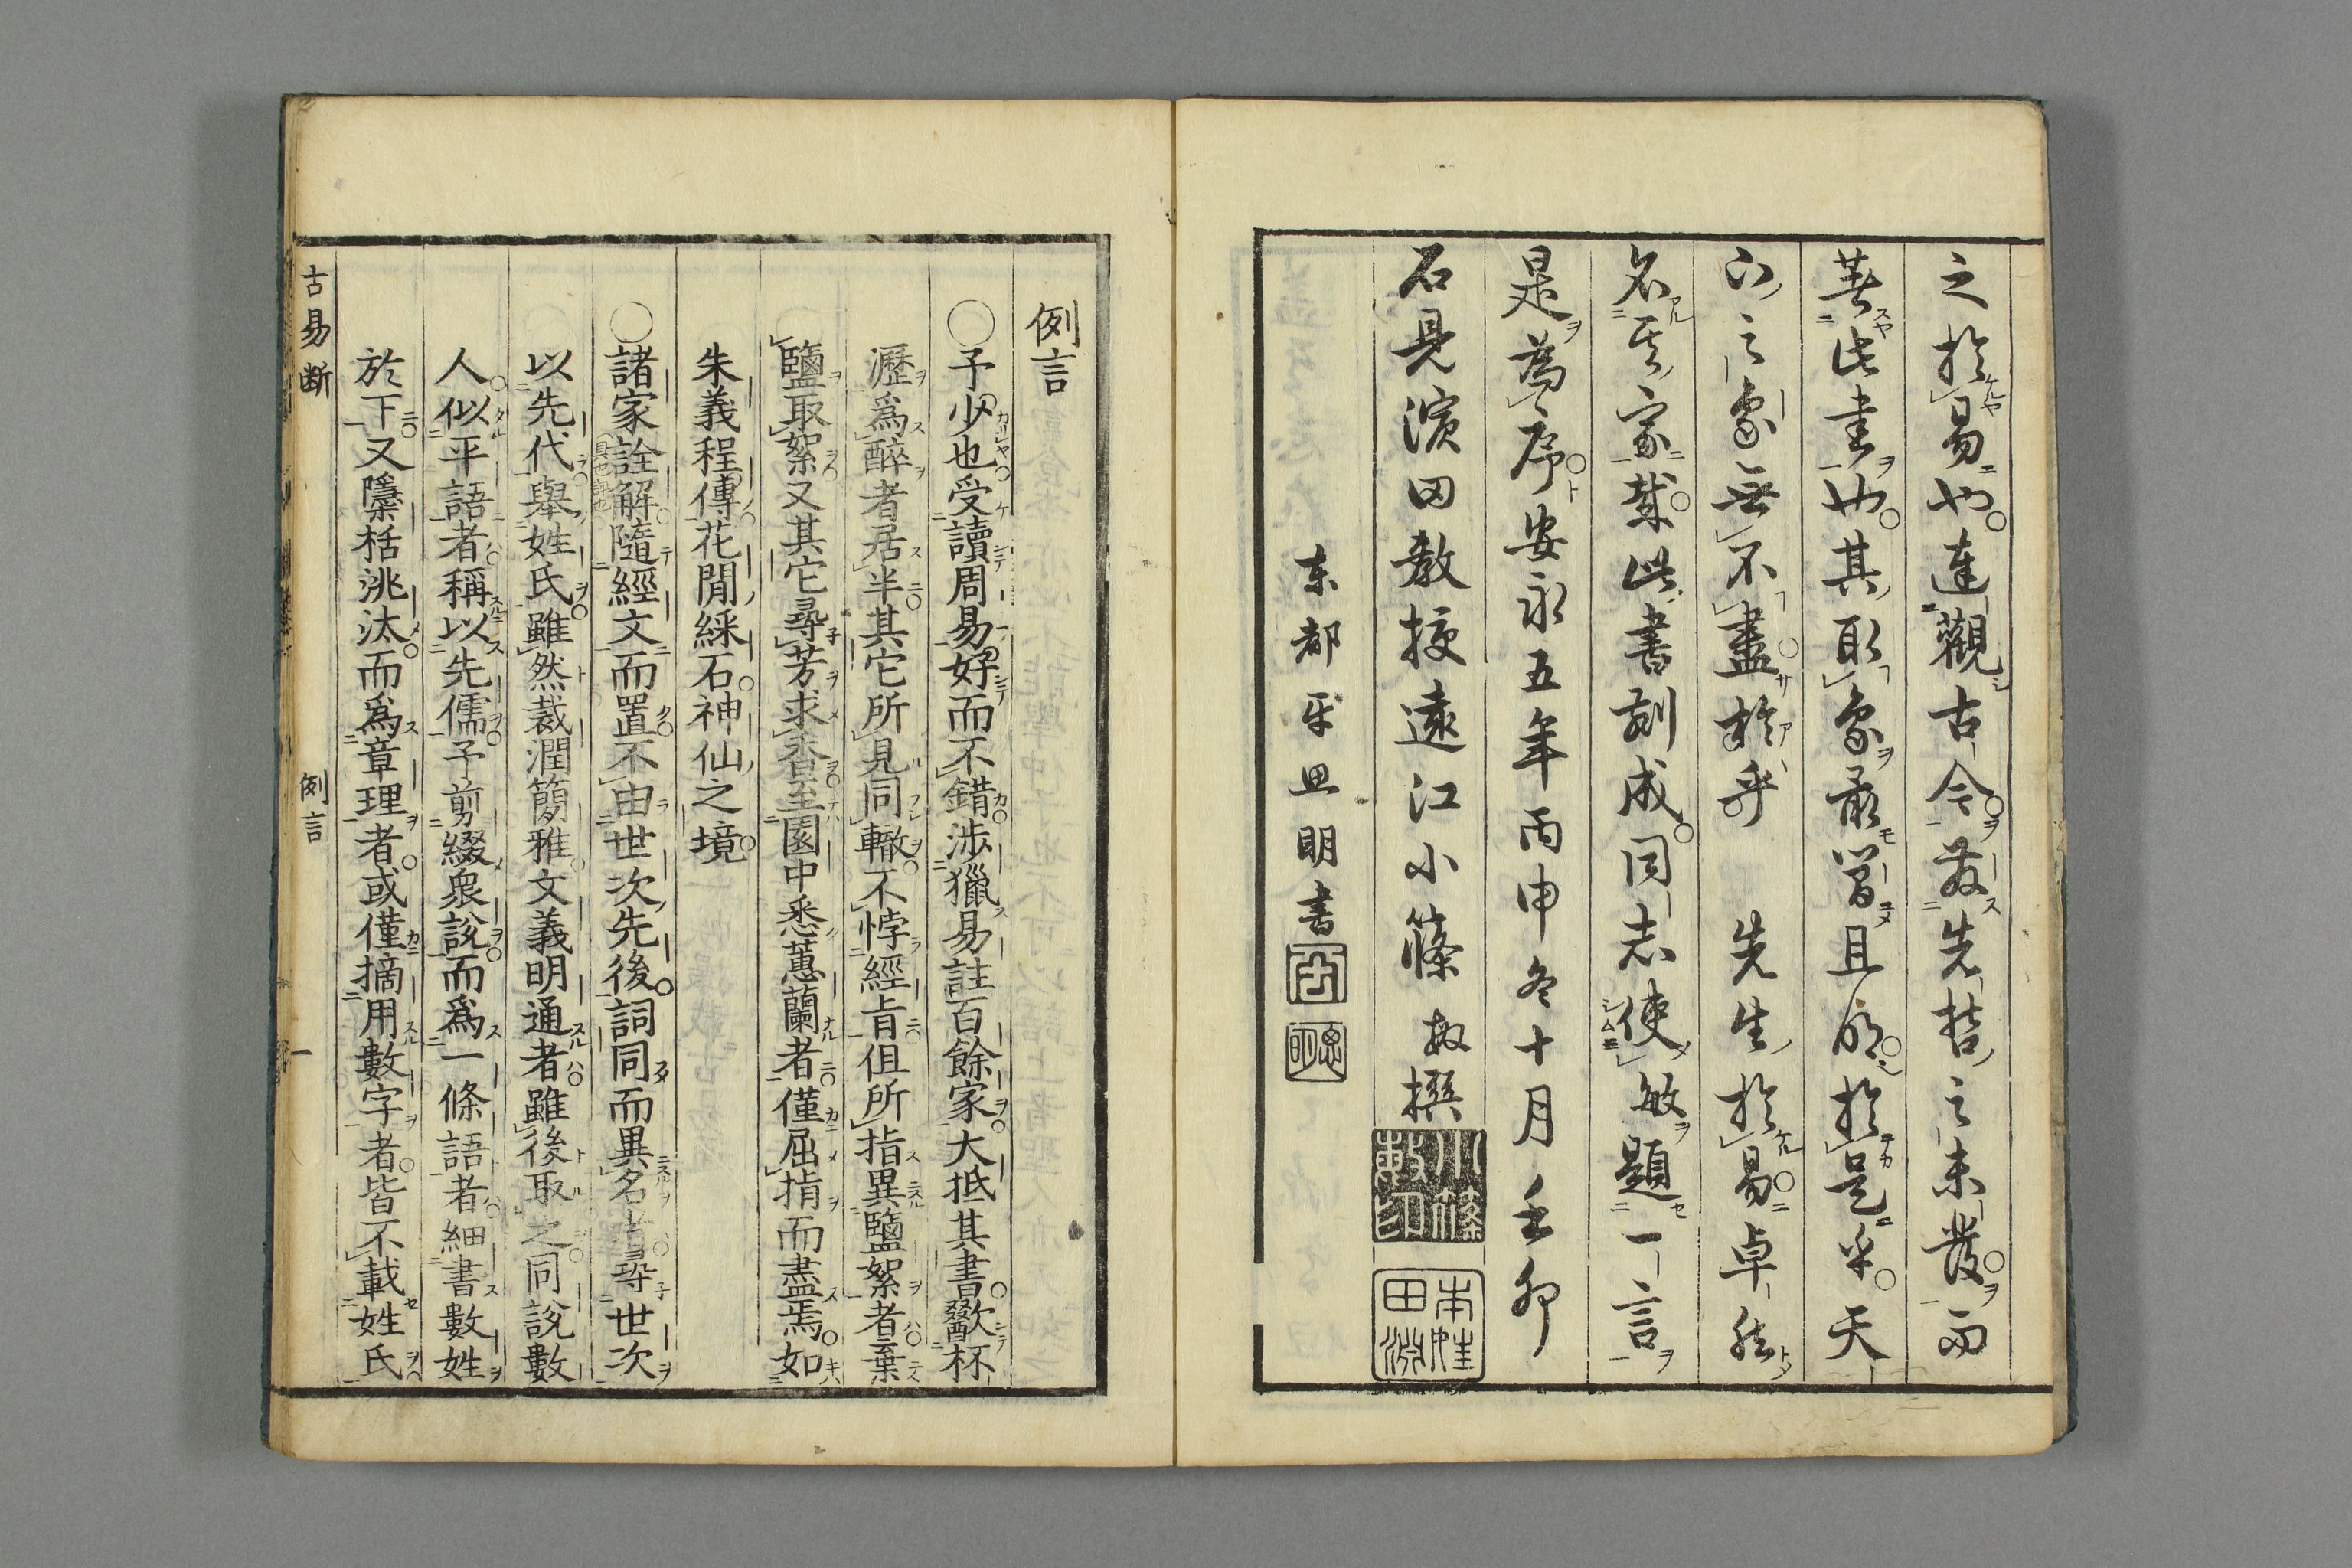 之於易也達觀古今發先哲之未發而
其此書也其取象最皆且明於是乎天
下之象無不盡於乎 先生於易卓然
名其家哉此書刻成同志使敏題一言
是為序安永五年丙申冬十月壬卯
石見濱田教授遠江小篠敏撰
東都平思明書
例言
○予少也受讀周易好而不錯涉獵易註百餘家大抵其書歠杯
瀝爲醉者居半其它所見同轍不悖經旨但所指異鹽絮者棄
鹽取絮又其它尋芳求香至園中悉蕙蘭者僅屈指而盡焉如
朱義程傳花閒綵石神仙之境
○諸家詮解隨經文而置不由世次先後詞同而異名者尋世次
以先代舉姓氏雖然裁潤簡雅文義明通者雖後取之同説數
人似平語者稱以先儒予剪綴衆説而爲一條語者細書數姓
於下又隱栝洮汰而爲章理者或僅摘用數字者皆不載姓氏
古易断 例言 一